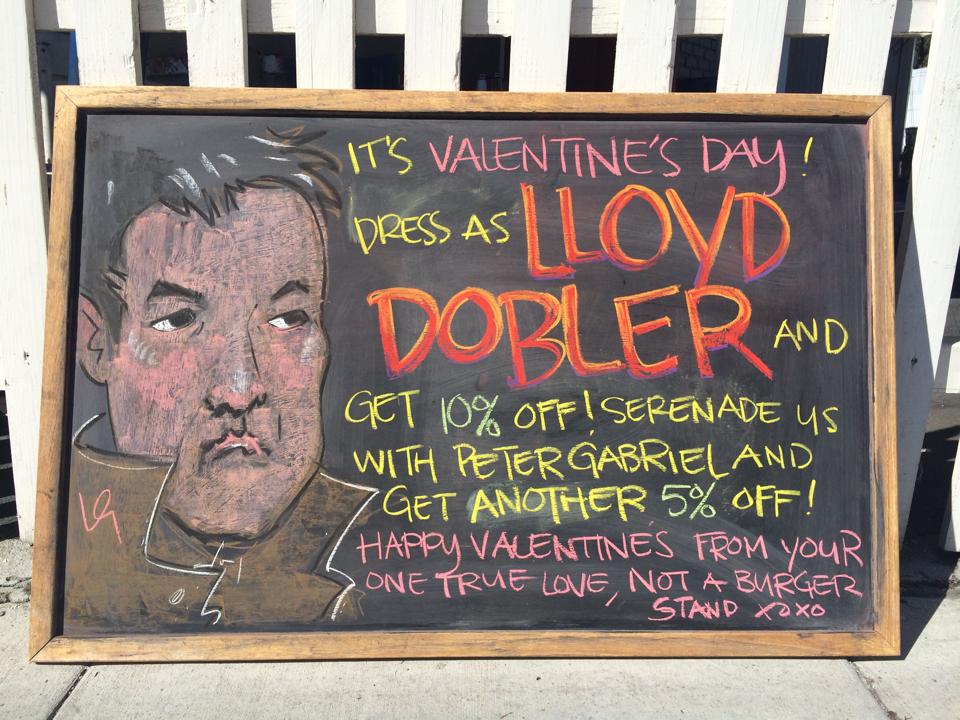 IT'S VALENTINE'S DAY!
DRESS AS LLOYD
DOBLER AND
GET 10% OFF! SERENADE US
WITH PETER GABRIEL AND
GET ANOTHER 5% OFF!
HAPPY VALENTINE'S FROM YOUR
ONE TRUE LOVE, NOT A BURGER
STAND XOXO